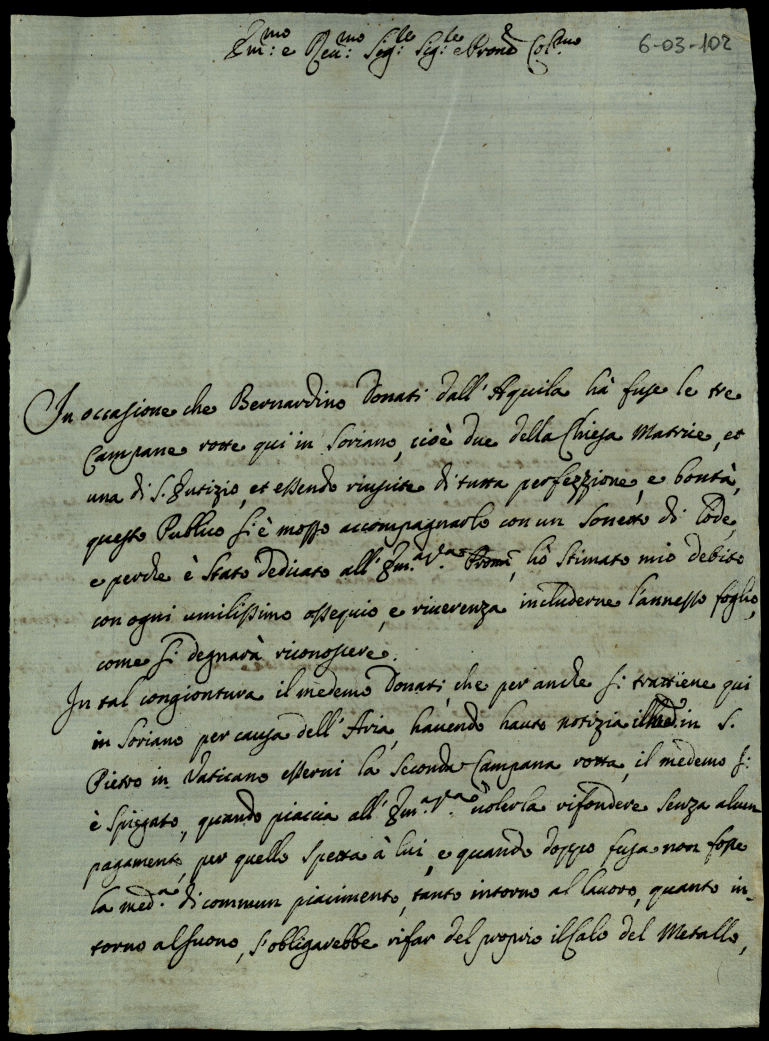 Em:mo e Reu:mo Sig:le Sig:le e Prone Col:mo
6-03-102
In occasione che Bernardino Donati dall'Aquila hà fuse le tre
Campane rotte qui in Soriano, cioè due della Chiesa Matrice, et
una di S. Eutizio, et essendo riuscite di tutta perfezzione, e bontà,
questo Publico si è mosso accompagnarlo con un Sonetto di lode,
e perche è stato dedicato all'Em:a V:a hò stimato mio debito
con ogni umilissimo ossequio, e riverenza includerne l'annesso foglio,
come si degnarà riconoscere.
In tal congiontura il medemo Donati, che per anche si trattiene qui
in Soriano per causa dell'Aria, havendo hauto notizia in S.
Pietro in Vaticano esservi la Seconda Campana rotta, il medemo si
è spiegato, quando piaccia all'Em:a V:a volerla rifondere senza alcun
pagamento, per quello spetta à lui, e quando doppo fusa non fosse
la med:a di commun piacimento, tanto intorno al lavoro, quanto in-
torno al suono, s'obligarebbe rifar del proprio il Calo del Metallo,